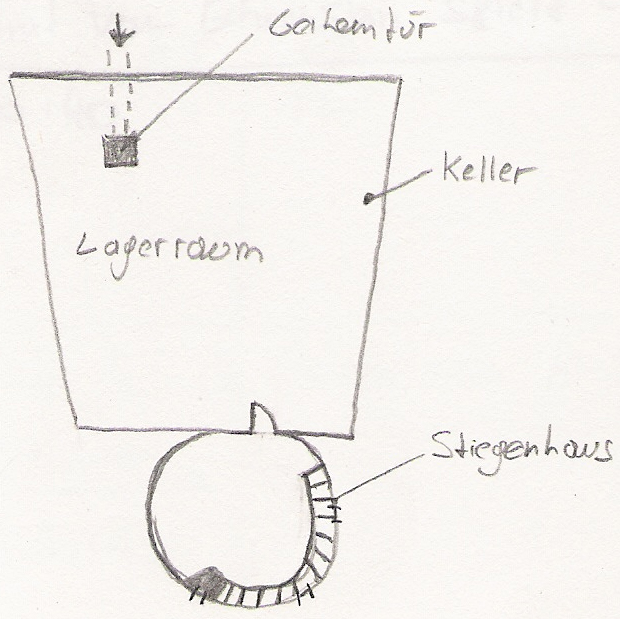 Geheimtür
Keller
Lagerraum
Stiegenhaus